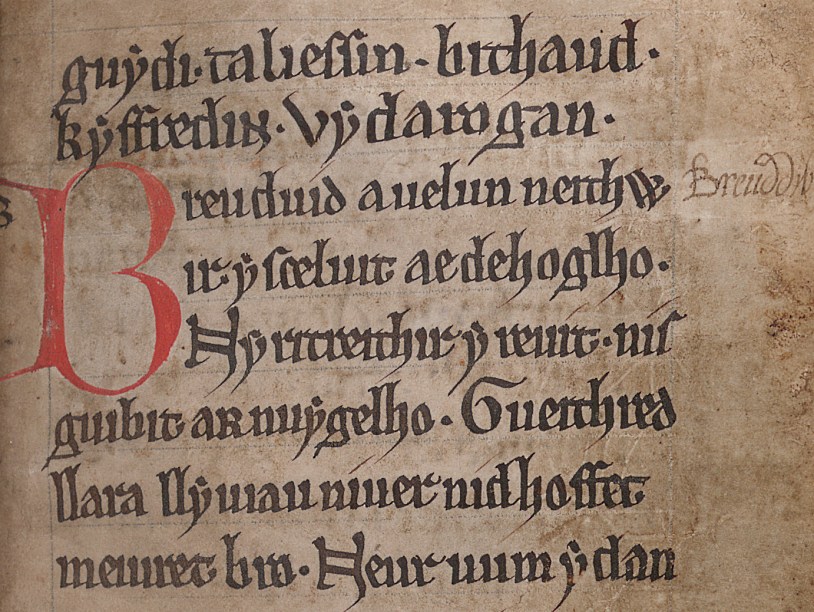 guẏdi· taliessin· bithaud·
kẏffredin· vẏdarogan·
Breuduid auelun neithwir
ẏ sceluit ae dehoglho·
Nẏ ritreithir ẏ reuit· nis
guibit ar nuẏ gelho· Gueithred
llara llẏuiau niuer nid hoffet
meiuret bro· Neur uum ẏ dan
Breuddw